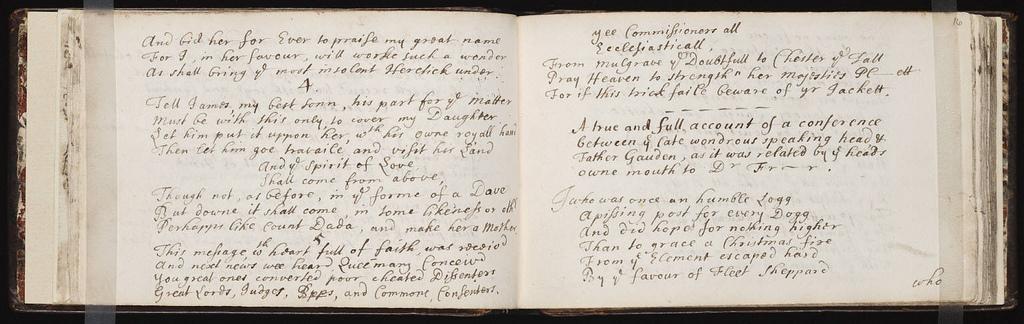 And bid her for Ever to praise my great name
For I, in her favour, will worke such a wonder
As shall bring yᵉ most insolent Heretick under.
4.
Tell James, my best sonn, his part for yᵉ matter
Must be with this only, to cover my Daughter
Let him put it uppon her wᵗʰ his owne royall hand
Then let him goe travaile and visit her Land
And yᵉ Spirit of Love
Shall come from above
Though not, as before, in yᵉ forme of a Dave
But downe it shall come, in some likeness or othʳ
Perhapps like Count Dada, and make her a Mother
5
This message wᵗʰ heart full of faith, was receivd
And next news wee hear Queen mary Conceivd
You great ones converted poor cheated Disenters
Great Lords, Judges, Bpps, and Commons Consenters.
16
yee Commissioners all
Ecclesiasticall,
From Mulgrave yᵉ Doubtfull to Chester yᵉ Tall
Pray Heaven to strengthⁿ her majesties Pl—ett
For if this trick faile beware of yr Jackett.
A true and full account of a conference
between yᵉ late wondrous speaking head &
Father Gauden, as it was related by yᵉ heads
owne mouth to Dʳ Fr—r.
I who was once an humble Logg
A pissing post for every Dogg
And did hope for nothing higher
Than to grace a Christmas fire
From yᵉ Element escaped hard
By yᵉ favour of Fleet Sheppard
who